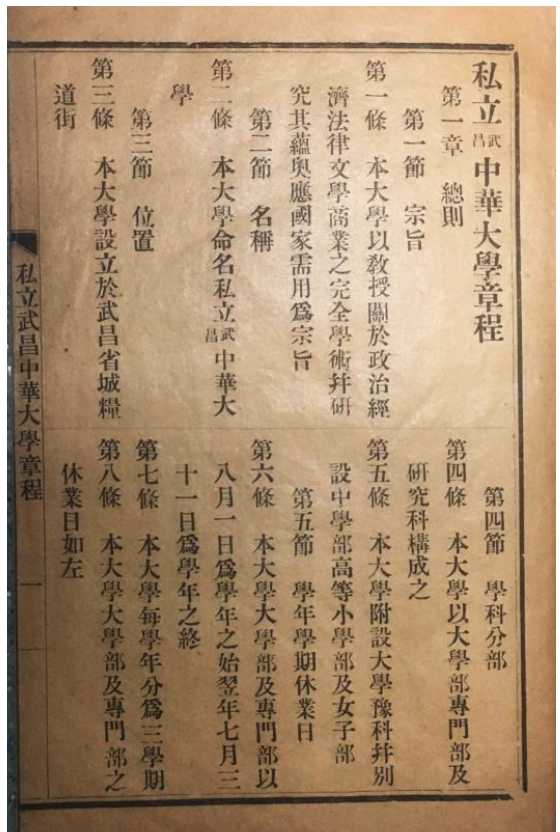 私立武昌中華大學章程
第一章　總則
第一節　宗旨
第一條　本大學以教授關於政治經
濟法律文學商業之完全學術幷研
究其蘊奧應國家需用爲宗旨
第二節　名稱
第二條　本大學命名私立武昌中華大
學
第三節　位置
第三條　本大學設立於武昌省城糧
道街
第四節　學科分部
第四條　本大學以大學部專門部及
研究科構成之
第五條　本大學附設大學豫科幷別
設中學部高等小學部及女子部
第五節　學年學期休業日
第六條　本大學大學部及專門部以
八月一日爲學年之始翌年七月三
十一日爲學年之終
第七條　本大學每學年分爲三學期
第八條　本大學大學部及專門部之
休業日如左
私立武昌中華大學章程
一